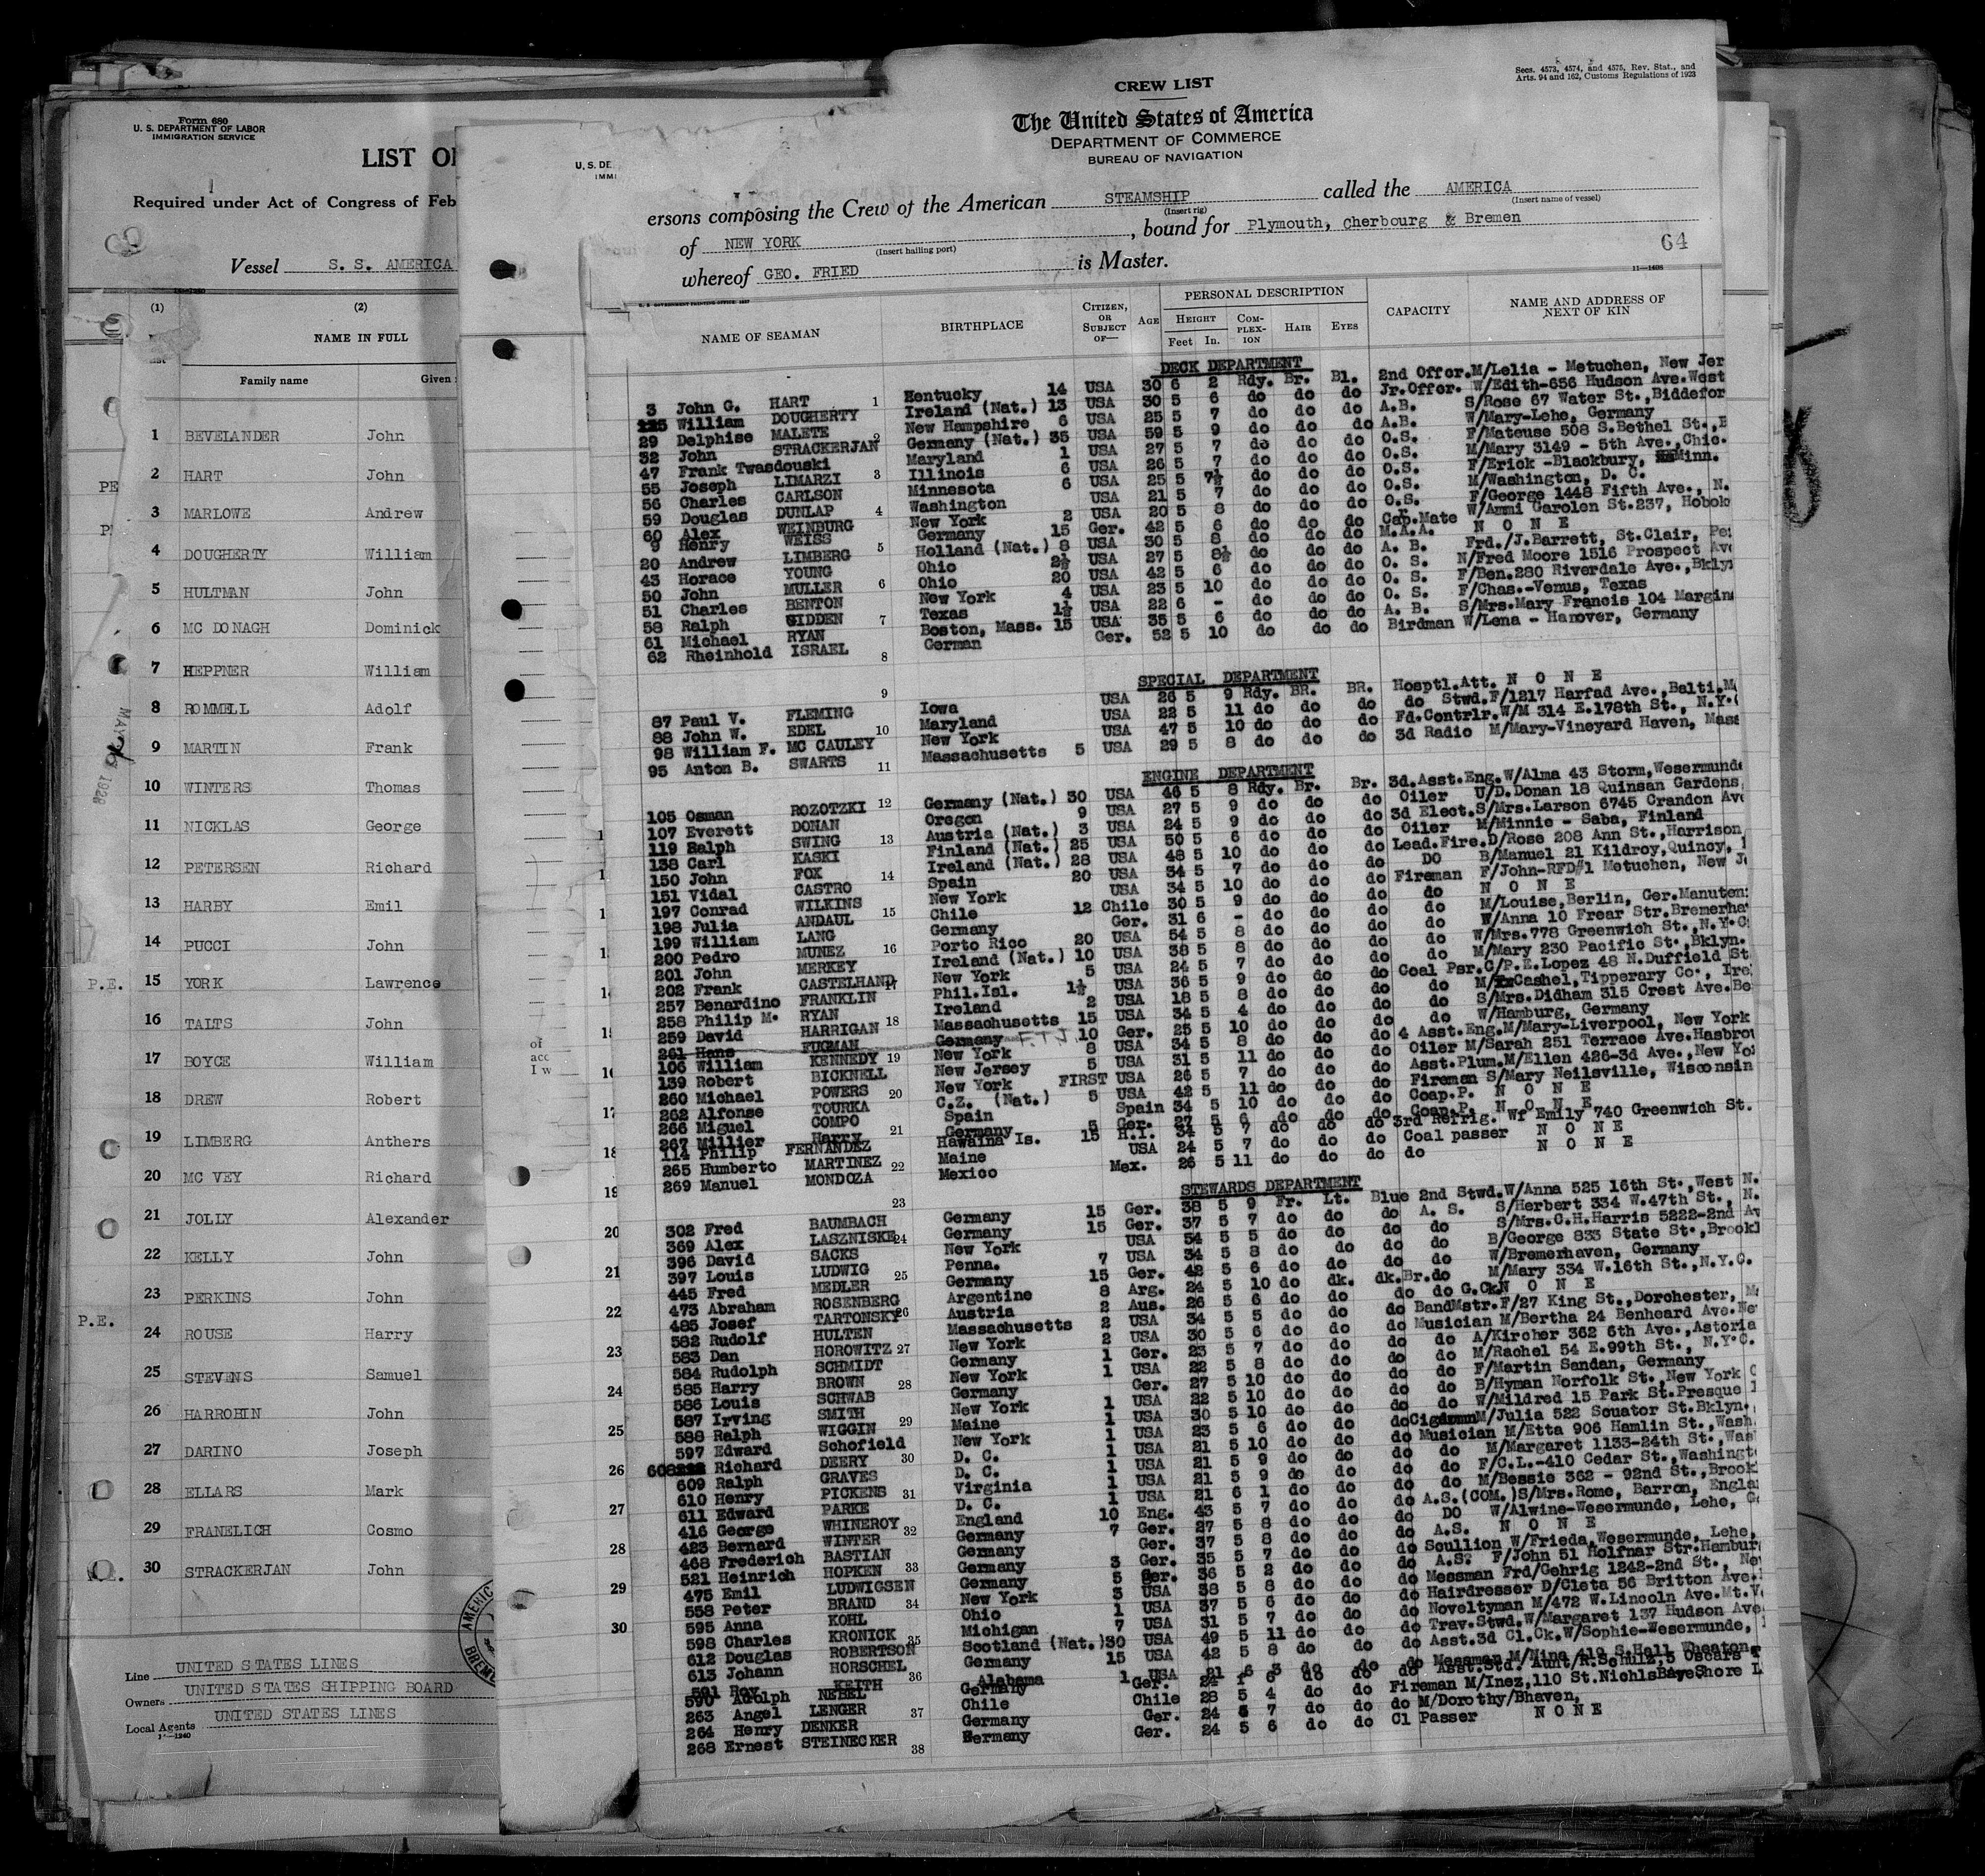 Form 680
U. S. DEPARTMENT OF LABOR
IMMIGRATION SERVICE
LIST OF
Required under Act of Congress of Feb
Vessel S. S. AMERICA
(1) (2)
NAME IN FULL
Family name Given
1 BEVELANDER John
2 HART John
3 MARLOWE Andrew
4 DOUGHERTY William
5 HULTMAN John
6 MC DONAGH Dominick
7 HEPPNER William
8 ROMMELL Adolf
9 MARTIN Frank
10 WINTERS Thomas
11 NICKLAS George
12 PETERSEN Richard
13 HARBY Emil
14 PUCCI John
P.E. 15 YORK Lawrence
16 TALTS John
17 BOYCE William
18 DREW Robert
19 LIMBERG Anthers
20 MC VEY Richard
21 JOLLY Alexander
22 KELLY John
23 PERKINS John
P.E. 24 ROUSE Harry
25 STEVENS Samuel
26 HARROHIN John
27 DARINO Joseph
28 ELLARS Mark
29 FRANELICH Cosmo
30 STRACKERJAN John
Line UNITED STATES LINES
Owners UNITED STATES SHIPPING BOARD
Local Agents UNITED STATES LINES
U. S. DE
IMMI
Secs. 4573, 4574, and 4575, Rev. Stat., and
Arts. 94 and 162, Customs Regulations of 1923
CREW LIST
The United States of America
DEPARTMENT OF COMMERCE
BUREAU OF NAVIGATION
ersons composing the Crew of the American STEAMSHIP called the AMERICA
(Insert rig) (Insert name of vessel)
of NEW YORK, bound for Plymouth, Cherbourg & Bremen
(Insert hailing port)
64
whereof GEO. FRIED is Master.
11—1498
NAME OF SEAMAN BIRTHPLACE CITIZEN, OR SUBJECT OF— AGE PERSONAL DESCRIPTION CAPACITY NAME AND ADDRESS OF NEXT OF KIN
HEIGHT COMPLEXION HAIR EYES
Feet In.
DECK DEPARTMENT
3 John G. HART Kentucky 14 USA 30 6 2 Rdy. Br. Bl. 2nd Offcr. M/Lelia - Metuchen, New Jer
125 William DOUGHERTY Ireland (Nat.) 13 USA 30 5 6 do do do Jr.Offcr. W/Edith-656 Hudson Ave.West
29 Delphise MALETE New Hampshire 6 USA 25 5 7 do do do A.B. S/Rose 67 Water St.,Biddefor
32 John STRACKERJAN Germany (Nat.) 35 USA 59 5 9 do do do A.B. W/Mary-Lehe, Germany
47 Frank Twasdouski Maryland 1 USA 27 5 7 do do do O.S. F/Mateuse 508 S.Bethel St.,B
55 Joseph LIMARZI Illinois 6 USA 26 5 7 do do do O.S. M/Mary 3149 - 5th Ave.,Chic.
56 Charles CARLSON Minnesota 6 USA 25 5 7½ do do do O.S. F/Erick -Blackbury, Minn.
59 Douglas DUNLAP Washington USA 21 5 7 do do do O.S. M/Washington, D. C.
60 Alex WEINBURG New York 2 USA 20 5 8 do do do O.S. F/George 1448 Fifth Ave., N.
9 Henry WEISS Germany 15 Ger. 42 5 6 do do do Cap.Mate W/Ammi Garolen St.237, Hobok
20 Andrew LIMBERG Holland (Nat.) 8 USA 30 5 8 do do do M.A.A. N O N E
43 Horace YOUNG Ohio 2½ USA 27 5 8½ do do do A. B. Frd./J.Barrett, St.Clair, Pe
50 John MULLER Ohio 20 USA 42 5 6 do do do O. S. N/Fred Moore 1516 Prospect Ave
51 Charles BENTON New York 4 USA 23 5 10 do do do O. S. F/Ben.280 Riverdale Ave.,Bkly
58 Ralph GIDDEN Texas 1½ USA 22 6 - do do do O. S. F/Chas.-Venus, Texas
61 Michael RYAN Boston, Mass. 15 USA 35 5 6 do do do A. B. S/Mrs.Mary Francis 104 Margin
62 Rheinhold ISRAEL German Ger. 52 5 10 do do do Birdman W/Lena - Hanover, Germany
SPECIAL DEPARTMENT
87 Paul V. FLEMING Iowa USA 26 5 9 Rdy. BR. BR. Hosptl.Att. N O N E
88 John W. EDEL Maryland USA 22 5 11 do do do do Stwd.F/1217 Harfad Ave.,Balti.M
98 William F. MC CAULEY New York USA 47 5 10 do do do Fd.Contrlr.W/M 314 E.178th St., N.Y.
95 Anton B. SWARTS Massachusetts 5 USA 29 5 8 do do do 3d Radio M/Mary-Vineyard Haven, Mass
ENGINE DEPARTMENT
105 Osman ROZOTZKI Germany (Nat.) 30 USA 46 5 8 Rdy. Br. Br. 3d.Asst.Eng.W/Alma 43 Storm,Wesermunde
107 Everett DONAN Oregon 9 USA 27 5 9 do do do Oiler U/D.Donan 18 Quinsan Gardens
119 Ralph SWING Austria (Nat.) 3 USA 24 5 9 do do do 3d Elect.S/Mrs.Larson 6745 Crandon Ave
138 Carl KASKI Finland (Nat.) 25 USA 50 5 6 do do do Oiler M/Minnie - Saba, Finland
150 John FOX Ireland (Nat.) 28 USA 48 5 10 do do do Lead.Fire.D/Rose 208 Ann St.,Harrison
151 Vidal CASTRO Spain 20 USA 34 5 7 do do do DO B/Manuel 21 Kildroy,Quincy,
197 Conrad WILKINS New York USA 34 5 10 do do do Fireman F/John-RFD#1 Metuchen, New J
198 Julia ANDAUL Chile 12 Chile 30 5 9 do do do do N O N E
199 William LANG Germany Ger. 31 6 - do do do do M/Louise,Berlin, Ger.Manuten
200 Pedro MUNEZ Porto Rico 20 USA 54 5 8 do do do do W/Anna 10 Frear Str.Bremerha
201 John MERKEY Ireland (Nat.) 10 USA 38 5 8 do do do do W/Mrs.778 Greenwich St.,N.Y.C
202 Frank CASTELHAND New York 5 USA 24 5 7 do do do do M/Mary 230 Pacific St.,Bklyn.
257 Benardino FRANKLIN Phil.Isl. 1½ USA 36 5 9 do do do Coal Psr.C/P.E.Lopez 48 N.Duffield St
258 Philip M. RYAN Ireland 2 USA 18 5 8 do do do do M/Cashel,Tipperary Co., Ire
259 David HARRIGAN Massachusetts 15 USA 34 5 4 do do do do S/Mrs.Didham 315 Crest Ave.Be
261 Hans FUGMAN Germany 10 Ger. 25 5 10 do do do do W/Hamburg, Germany
106 William KENNEDY New York 8 USA 34 5 8 do do do 4 Asst.Eng.M/Mary-Liverpool, New York
139 Robert BICKNELL New Jersey 5 USA 31 5 11 do do do Oiler M/Sarah 251 Terrace Ave.Hasbrou
260 Michael POWERS New York FIRST USA 26 5 7 do do do Asst.Plum.M/Ellen 426-3d Ave.,New Yo
262 Alfonse TOURKA C.Z. (Nat.) 5 USA 42 5 11 do do do Fireman S/Mary Neilsville, Wisconsin
266 Miguel COMPO Spain Spain 34 5 10 do do do Coap.P. N O N E
267 Millier Harry Germany 5 Ger. 27 5 do do do Coap.P. N O N E
114 Philip FERNANDEZ Hawaina Is. 15 H.I. 34 5 7 do do do 3rd Refrig. Wf Emily 740 Greenwich St.
265 Humberto MARTINEZ Maine USA 24 5 7 do do do Coal passer N O N E
269 Manuel MONDOZA Mexico Mex. 26 5 11 do do do do N O N E
STEWARDS DEPARTMENT
302 Fred BAUMBACH Germany 15 Ger. 38 5 9 Fr. Lt. Blue 2nd Stwd.W/Anna 525 16th St.,West N.
369 Alex LASZNISKE Germany 15 Ger. 37 5 7 do do do A. S. S/Herbert 334 W.47th St., N.
396 David SACKS New York USA 54 5 5 do do do do S/Mrs.C.H.Harris 5222-2nd Av
397 Louis LUDWIG Penna. 7 USA 34 5 8 do do do do B/George 833 State St.,Brookl
445 Fred MEDLER Germany 15 Ger. 42 5 6 do do do do W/Bremerhaven, Germany
473 Abraham ROSENBERG Argentine 8 Arg. 24 5 10 do dk. dk.Br.do M/Mary 334 W.16th St.,N.Y.C.
485 Josef TARTONSKY Austria 2 Aus. 26 5 6 do do do do G.Ck N O N E
582 Rudolf HULTEN Massachusetts 2 USA 34 5 5 do do do BandMstr.F/27 King St.,Dorchester,
583 Dan HOROWITZ New York 2 USA 30 5 6 do do do Musician M/Bertha 24 Benheard Ave.Ne
584 Rudolph SCHMIDT Germany 1 Ger. 23 5 7 do do do do A/Kircher 362 6th Ave.,Astoria
585 Harry BROWN New York 1 USA 22 5 8 do do do do M/Rachel 54 E.99th St., N.Y.C.
586 Louis SCHWAB Germany Ger. 27 5 10 do do do do F/Martin Sandan, Germany
587 Irving SMITH New York 1 USA 22 5 10 do do do do B/Hyman Norfolk St.,New York C
588 Ralph WIGGIN Maine 1 USA 30 5 10 do do do do W/Mildred 15 Park St.Presque
597 Edward Schofield New York 1 USA 23 5 6 do do do M/Julia 522 Scuator St.Bklyn.
608 Richard DEERY D. C. 1 USA 21 5 10 do do do Musician M/Etta 906 Hamlin St.,Wash
609 Ralph GRAVES D. C. 1 USA 21 5 9 do do do do M/Margaret 1133-24th St.,Was
610 Henry PICKENS Virginia 1 USA 21 5 9 do do do do F/C.L.-410 Cedar St.,Washingt
611 Edward PARKE D. C. 1 USA 21 6 1 do do do do M/Bessie 362 - 92nd St.,Brook
416 George WHINEROY England 10 Eng. 43 5 7 do do do A.S.(COM.)S/Mrs.Rome, Barron, Engla
423 Bernard WINTER Germany 7 Ger. 27 5 8 do do do DO W/Alwine-Wesermunde, Lehe, G
468 Frederich BASTIAN Germany Ger. 37 5 8 do do do A.S. N O N E
521 Heinrich HOPKEN Germany 3 Ger. 35 5 7 do do do Scullion W/Frieda,Wesermunde, Lehe,
475 Emil LUDWIGSEN Germany 5 Ger. 36 5 2 do do do A.S. F/John 51 Holfnar Str.Hambur
558 Peter BRAND New York 3 USA 38 5 8 do do do Messman Frd/Gehrig 1242-2nd St., Ne
595 Anna KOHL Ohio 1 USA 37 5 6 do do do Hairdresser D/Cleta 56 Britton Ave.
598 Charles KRONICK Michigan 7 USA 31 5 7 do do do Noveltyman M/472 W.Lincoln Ave.Mt.V
612 Douglas ROBERTSON Scotland (Nat.) 30 USA 49 5 11 do do do Trav.Stwd.W/Margaret 137 Hudson Ave
613 Johann HORSCHEL Germany 15 USA 42 5 8 do do do Asst.3d Cl.Ck.W/Sophie-Wesermunde,
591 Roy KEITH Alabama 1 USA 21 6 3 do do do Messman M/Nina 419 S.Hall Wheaton
590 Adolph NEBEL Germany Ger. 24 do do do Asst.Std. Aunt/R.Schulz,5 Oscars
263 Angel LENGER Chile Chile 28 5 4 do do Fireman M/Inez,110 St.Nichls Bay Shore
264 Henry DENKER Germany Ger. 24 5 7 do do do M/Dorothy/Bhaven,
268 Ernest STEINECKER Germany Ger. 24 5 6 do do Cl Passer N O N E